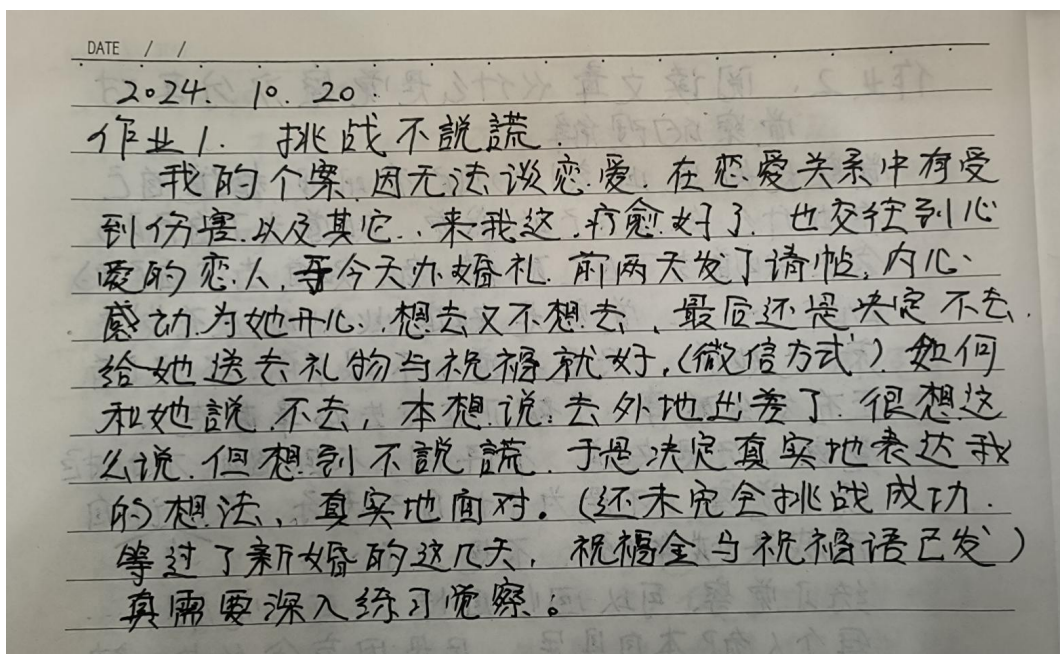 DATE / /
2024. 10. 20.
作业1. 挑战不説謊.
我的个案.因无法谈恋爱.在恋爱关系中有受
到伤害.以及其它..来我这.疗愈好了.也交往到心
爱的恋人,于今天办婚礼.前两天发了请帖,内心.
感动.为她开心.想去又不想去,最后还是决定不去.
给她送去礼物与祝福就好,(微信方式).如何
和她説.不去,本想说:去外地出差了.很想这
么说.但想到不説謊.于是决定真实地表达我
的想法、真实地面对。(还未完全挑战成功.
等过了新婚的这几天,祝福金与祝福语已发)
真需要深入练习觉察。